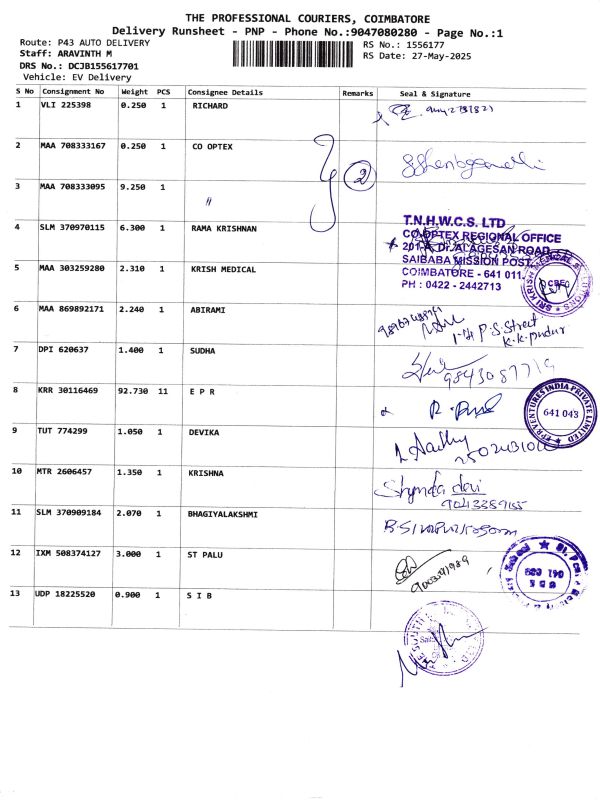 THE PROFESSIONAL COURIERS, COIMBATORE
Delivery Runsheet - PNP - Phone No.:9047080280 - Page No.:1
Route: P43 AUTO DELIVERY
RS No.: 1556177
Staff: ARAVINTH M
RS Date: 27-May-2025
DRS No.: DCJB155617701
Vehicle: EV Delivery
S No Consignment No Weight PCS Consignee Details Remarks Seal & Signature
1 VLI 225398 0.250 1 RICHARD
2 MAA 708333167 0.250 1 CO OPTEX
2
3 MAA 708333095 9.250 1 "
4 SLM 370970115 6.300 1 RAMA KRISHNAN
T.N.H.W.C.S. LTD
CO-OPTEX REGIONAL OFFICE
201-A, Dr. ALAGESAN ROAD,
SAIBABA MISSION POST,
COIMBATORE - 641 011.
PH : 0422 - 2442713
5 MAA 303259280 2.310 1 KRISH MEDICAL
6 MAA 869892171 2.240 1 ABIRAMI
P.S. Street
K.K. pudur
7 DPI 620637 1.400 1 SUDHA
9843087719
8 KRR 30116469 92.730 11 E P R
EPR VENTURES INDIA PRIVATE LIMITED
641 043
9 TUT 774299 1.050 1 DEVIKA
10 MTR 2606457 1.350 1 KRISHNA
devi
11 SLM 370909184 2.070 1 BHAGIYALAKSHMI
12 IXM 508374127 3.000 1 ST PALU
13 UDP 18225520 0.900 1 S I B